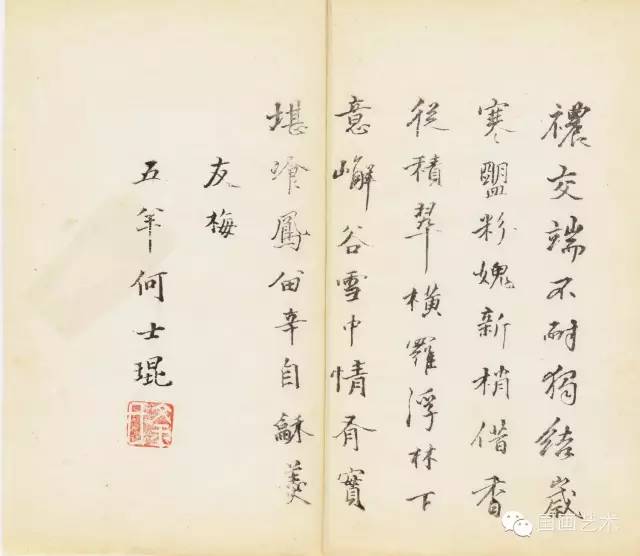 襛交端不耐獨結歲
寒盟粉媿新梢借香
從積翠橫羅浮林下
意嶰谷雪中情有實
堪飡鳳留辛自龢羹
友梅
五年何士琨
国画艺术